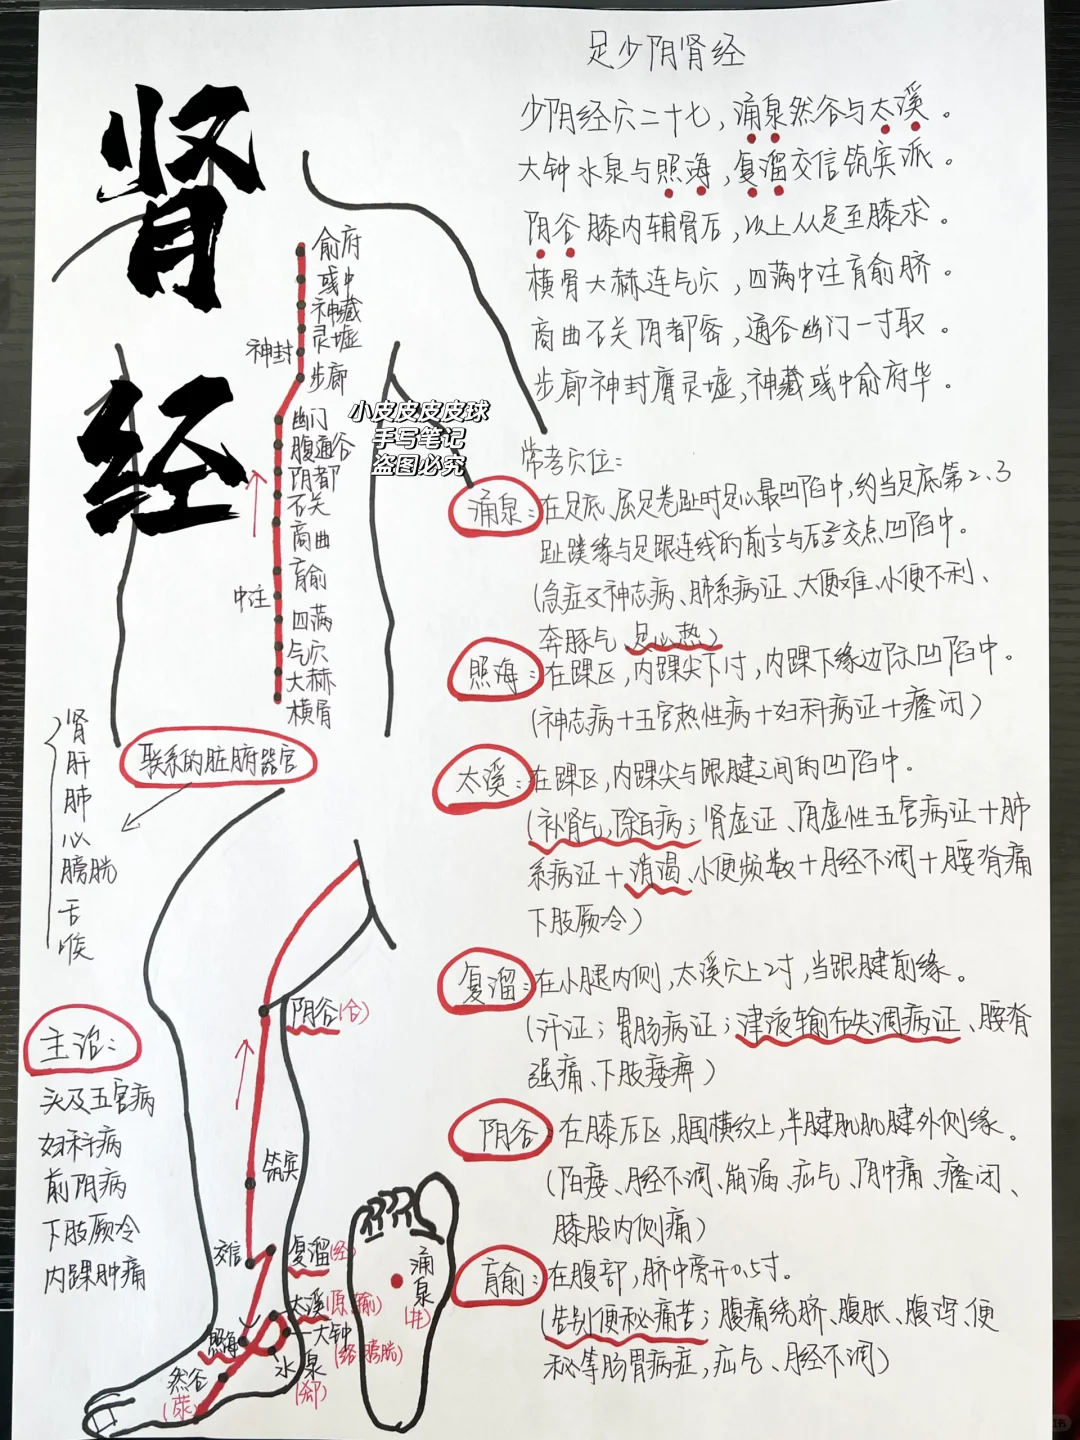 足少阴肾经
肾
经
少阴经穴二十七，涌泉然谷与太溪。
大钟水泉与照海，复溜交信筑宾派。
阴谷膝内辅骨后，以上从足至膝求。
横骨大赫连气穴，四满中注肓俞脐。
商曲石关阴都密，通谷幽门一寸取。
步廊神封膺灵墟，神藏彧中俞府毕。
俞府
彧中
神藏
灵墟
神封
步廊
幽门
腹通谷
阴都
石关
商曲
肓俞
中注
四满
气穴
大赫
横骨
小皮皮皮皮球
手写笔记
盗图必究
联系的脏腑器官
肾
肝
肺
心
膀胱
舌
喉
主治：
头及五官病
妇科病
前阴病
下肢厥冷
内踝肿痛
阴谷(合)
筑宾
交信
复溜(经)
太溪(原 输)
大钟
(络 膀胱)
照海
水泉
(郄)
然谷
(荥)
涌泉
(井)
常考穴位：
涌泉：在足底，屈足卷趾时足心最凹陷中，约当足底第2、3
趾蹼缘与足跟连线的前⅓与后⅔交点凹陷中。
(急症及神志病、肺系病证、大便难、小便不利、
奔豚气、足心热)
照海：在踝区，内踝尖下1寸，内踝下缘边际凹陷中。
(神志病+五官热性病+妇科病证+癃闭)
太溪：在踝区，内踝尖与跟腱之间的凹陷中。
(补肾气，除百病；肾虚证、阴虚性五官病证+肺
系病证+消渴、小便频数+月经不调+腰脊痛
下肢厥冷)
复溜：在小腿内侧，太溪穴上2寸，当跟腱前缘。
(汗证；胃肠病证；津液输布失调病证、腰脊
强痛、下肢痿痹)
阴谷：在膝后区，腘横纹上，半腱肌肌腱外侧缘。
(阳痿、月经不调、崩漏、疝气、阴中痛、癃闭、
膝股内侧痛)
肓俞：在腹部，脐中旁开0.5寸。
(告别便秘痛苦；腹痛绕脐、腹胀、腹泻、便
秘等肠胃病症，疝气、月经不调)